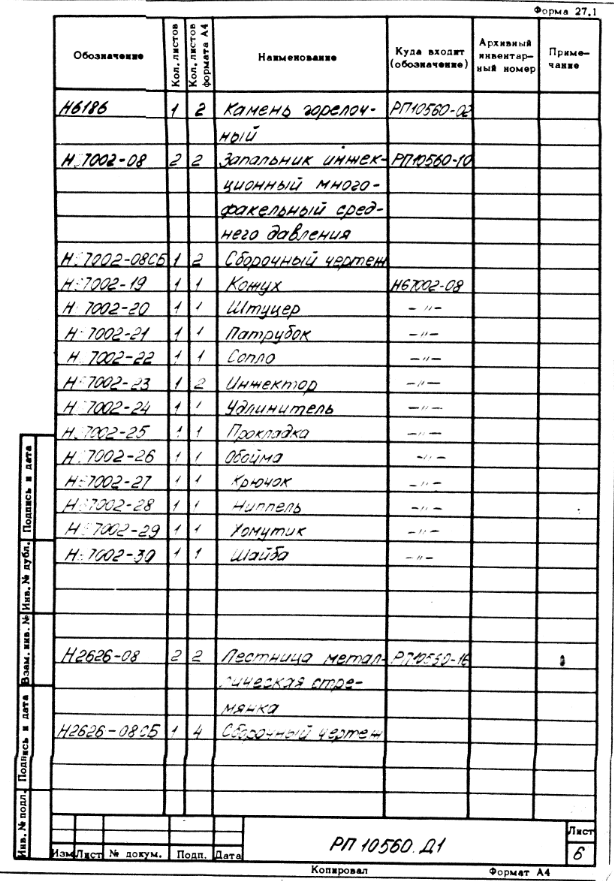 Форма 27.1
Обозначение Кол. листов Кол. листов формата А4 Наименование Куда входит (обозначение) Архивный инвентарный номер Примечание
Н6186 1 2 Камень горелоч- РП10560-02
ный
Н 7002-08 2 2 Запальник инжек- РП10560-10
ционный много-
факельный сред-
него давления
Н 7002-08СБ 1 2 Сборочный чертеж
Н 7002-19 1 1 Кожух Н67002-08
Н 7002-20 1 1 Штуцер –〃–
Н 7002-21 1 1 Патрубок –〃–
Н 7002-22 1 1 Сопло –〃–
Н 7002-23 1 2 Инжектор –〃–
Н 7002-24 1 1 Удлинитель –〃–
Н 7002-25 1 1 Прокладка –〃–
Н 7002-26 1 1 Обойма –〃–
Н 7002-27 1 1 Крючок –〃–
Н 7002-28 1 1 Ниппель –〃–
Н 7002-29 1 1 Хомутик –〃–
Н 7002-30 1 1 Шайба –〃–
Н2626-08 2 2 Лестница метал- РП10560-16
лическая стре-
мянка
Н2626-08СБ 1 4 Сборочный чертеж
Инв. № подл. Подпись и дата Взам. инв. № Инв. № дубл. Подпись и дата
РП 10560. Д1
Лист
6
Изм Лист № докум. Подп. Дата
Копировал Формат А4